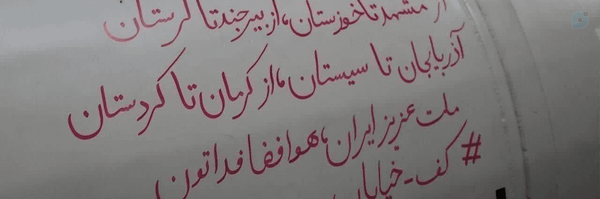 از مشهد تا خوزستان، از بیرجند تا لرستان
آذربایجان تا سیستان، از کرمان تا کردستان
ملت عزیز ایران، هوافضا فداتون
#کف_خیابان